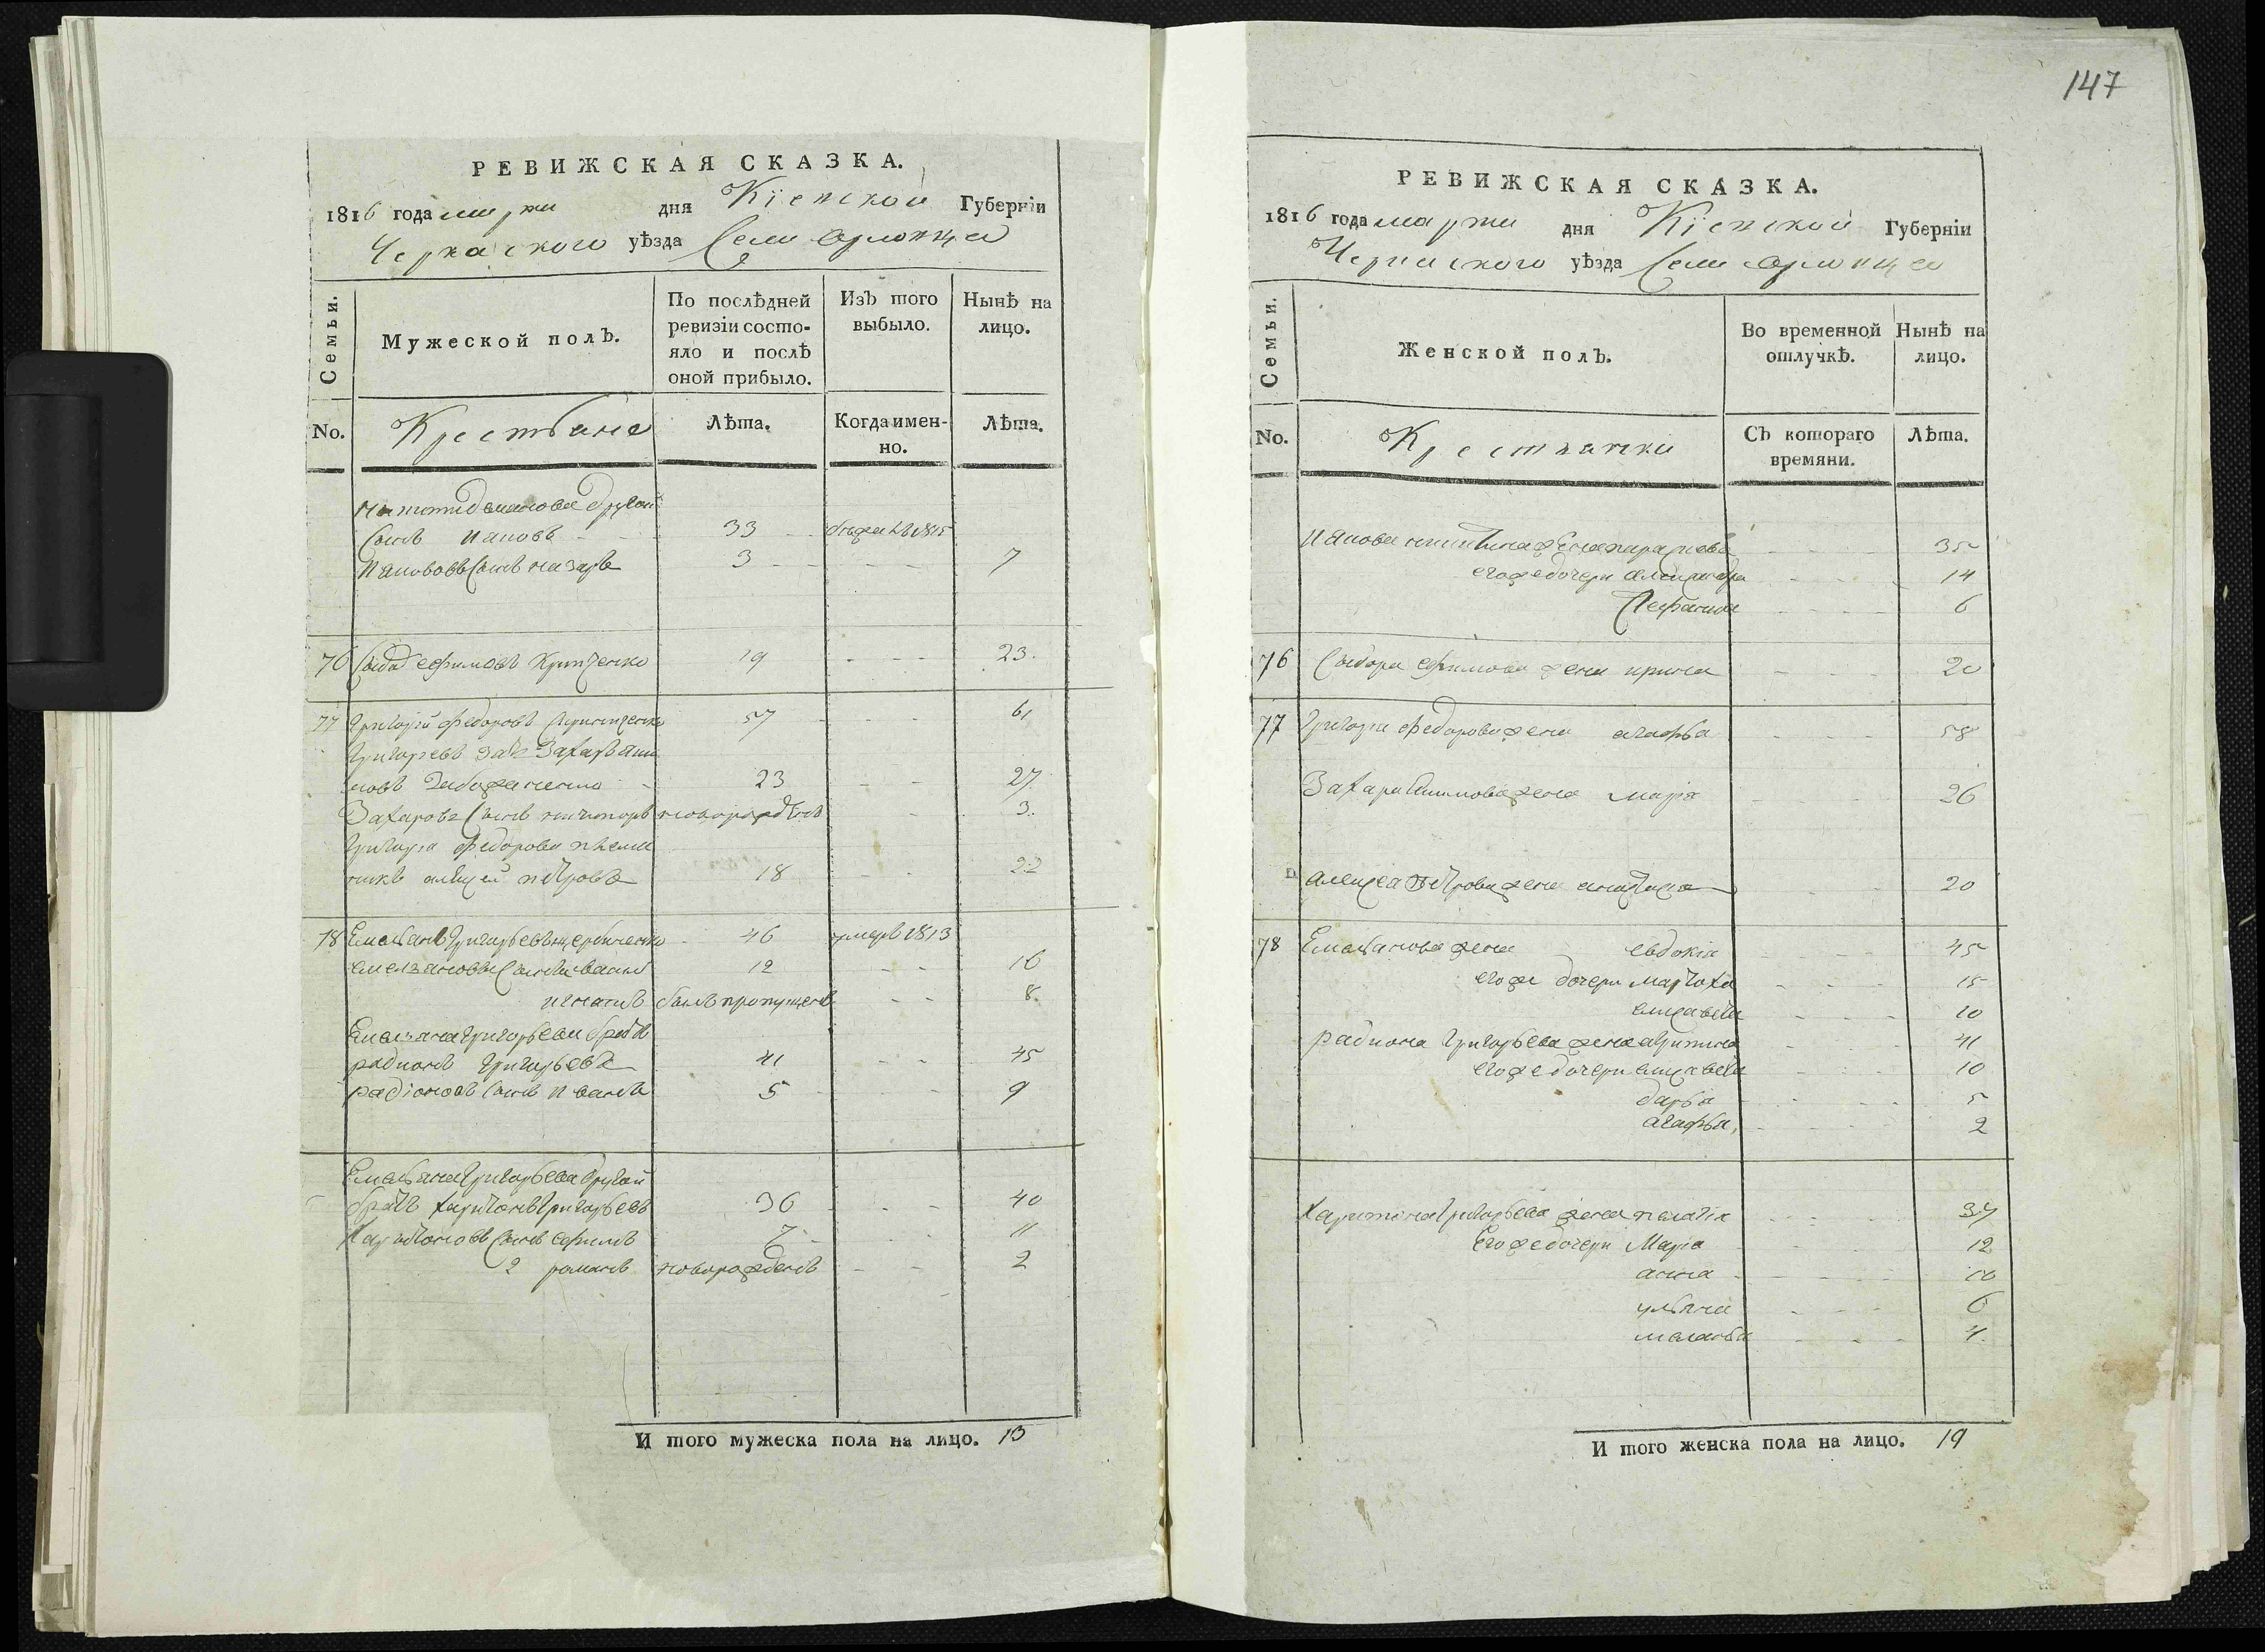 147
РЕВИЖСКАЯ СКАЗКА.
1816 года марта дня Кіевской Губерніи
Черкаского уѣзда Села Орловца
Семьи.
Мужеской полъ.
По послѣдней ревизіи состо-
яло и послѣ
оной прибыло.
Изъ того
выбыло.
Нынѣ на
лицо.
No.
Крестьяне
Лѣта.
Когда имен-
но.
Лѣта.
другой
сынъ Иановъ 33 1815
Иановъ сынъ назаръ 3 7
76 Сидор ефимовъ 19 23.
77 Григорій федоровъ 57 61
Григорьевъ зать Захаръ
23 27.
Захаровъ сынъ новорожденъ 3.
Григорія федорова племя
никъ алексей петровъ 18 22
78 Емельянъ Григорьевъ 46 умеръ 1813
емеляновы сыны 12 16
игнатъ былъ пропущенъ 8.
Емельяна Григорьева братъ
радионъ Григорьевъ 41 45
радіоновъ сынъ Иванъ 5 9
Емельяна Григорьева другой
братъ харитонъ Григорьевъ 36 40
Харитоновъ сынъ ефимъ 7 11
2 романъ новорожденъ 2
И того мужеска пола на лицо. 13
РЕВИЖСКАЯ СКАЗКА.
1816 года марта дня Кіевской Губерніи
Черкаского уѣзда Села Орловца
Семьи.
Женской полъ.
Во временной
отлучкѣ.
Нынѣ на
лицо.
No.
Крестьянки
Съ котораго
времяни.
Лѣта.
Ианова жена 35
егоже дочери александра 14
Стефанида 6
76 Сидора ефимова жена ирина 20
77 Григорія федорова жена агафья 58
Захара жена марія 26
алексея Петрова жена анастасия 20
78 Емельянова жена евдокія 45
егоже дочери 15
елисавета 10
радиона Григорьева жена 41
егоже дочери елисавета 10
дарья 5
агафья, 2
Харитона Григорьева жена пелагія 37
Егоже дочери Марія 12
анна 10
ульяна 6
маланья 4.
И того женска пола на лицо. 19